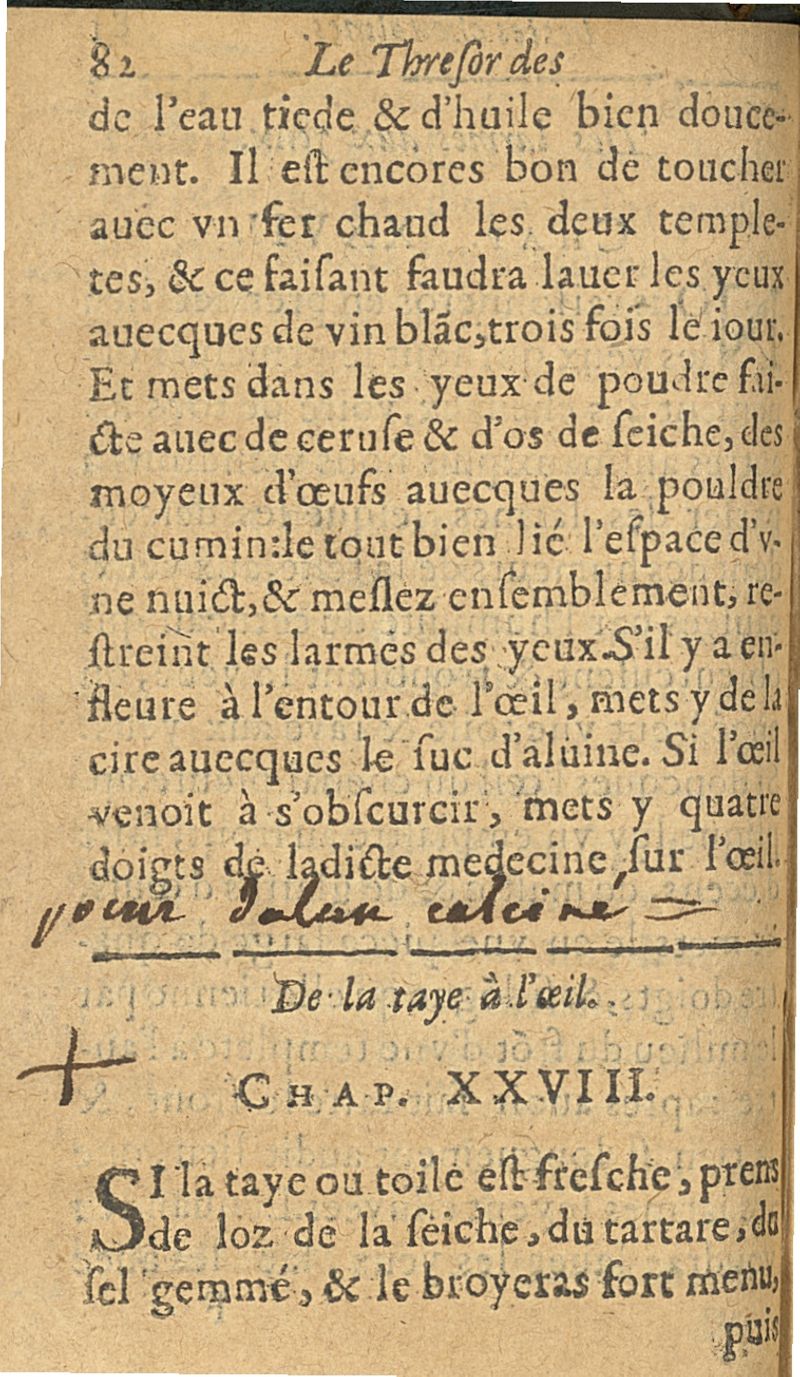 82 Le Threſor des
de l'eau tiede & d'huile bien douce-
ment. Il eſt encores bon de toucher
auec vn fer chaud les deux temple-
tes, & ce faiſant faudra lauer les yeux
auecques de vin blãc, trois fois le iour.
Et mets dans les yeux de poudre fai-
cte auec de ceruſe & d'os de ſeiche, des
moyeux d'œufs auecques la pouldre
du cumin: le tout bien lié l'eſpace d'v-
ne nuict, & meſlez enſemblement, re-
ſtreint les larmes des yeux. S'il y a en-
fleure à l'entour de l'œil, mets y de la
cire auecques le ſuc d'aluine. Si l'œil
venoit à s'obſcurcir, mets y quatre
doigts de ladicte medecine ſur l'œil.
pour dalun calciné =
De la taye à l'œil.
+
CHAP. XXVIII.
SI la taye ou toile eſt freſche, prens
de loz de la ſeiche, du tartare, du
ſel gemmé, & le broyeras fort menu,
puis